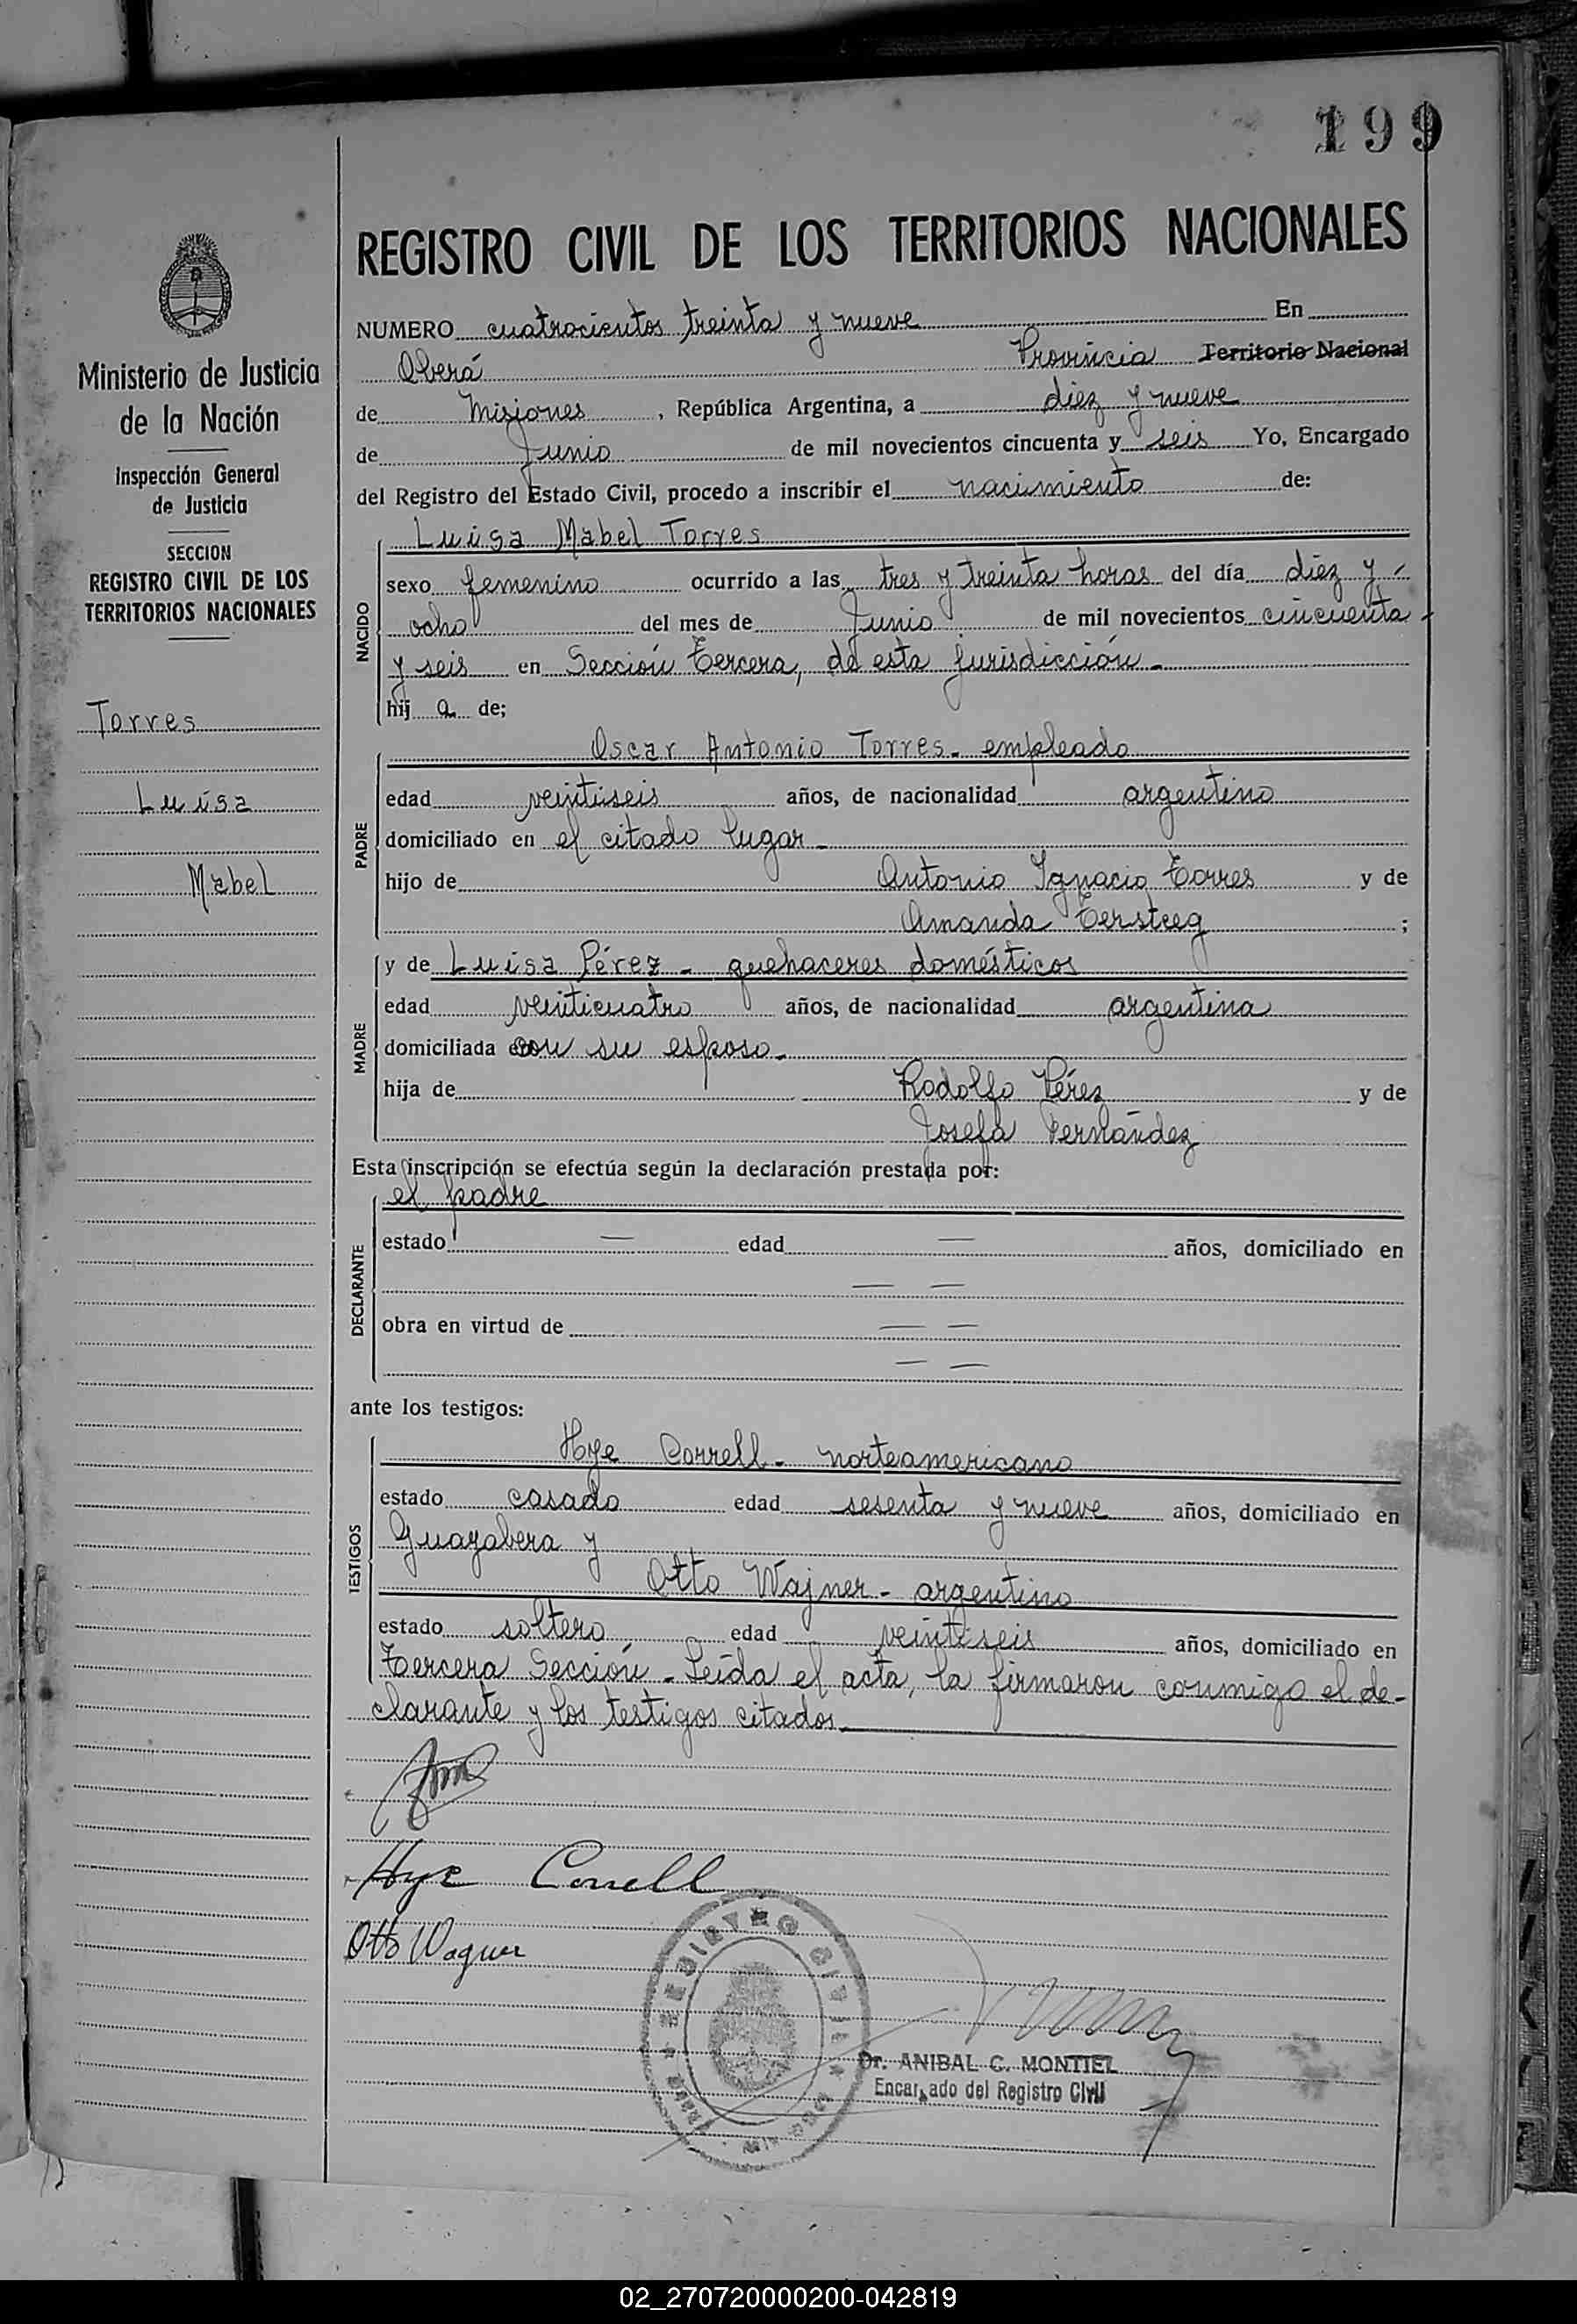 199
REGISTRO CIVIL DE LOS TERRITORIOS NACIONALES
Ministerio de Justicia
de la Nación
Inspección General
de Justicia
SECCION
REGISTRO CIVIL DE LOS
TERRITORIOS NACIONALES
Torres
Luisa
Mabel
NUMERO cuatrocientos treinta y nueve En
Oberá Provincia Territorio Nacional
de Misiones, República Argentina, a diez y nueve
de Junio de mil novecientos cincuenta y seis Yo, Encargado
del Registro del Estado Civil, procedo a inscribir el nacimiento de:
NACIDO
Luisa Mabel Torres
sexo femenino ocurrido a las tres y treinta horas del día diez y -
ocho del mes de Junio de mil novecientos cincuenta -
y seis en Sección Tercera, de esta jurisdicción.-
hij a de;
PADRE
Oscar Antonio Torres - empleado
edad veintiseis años, de nacionalidad argentino
domiciliado en el citado lugar -
hijo de Antonio Ignacio Torres y de
Amanda Tersteeg ;
MADRE
y de Luisa Pérez - quehaceres domésticos
edad veinticuatro años, de nacionalidad argentina
domiciliada en con su esposo.-
hija de Rodolfo Pérez y de
Josefa Fernández
Esta inscripción se efectúa según la declaración prestada por:
DECLARANTE
el padre
estado — edad — años, domiciliado en
— —
obra en virtud de — —
— —
ante los testigos:
TESTIGOS
Hye Correll - norteamericano
estado casado edad sesenta y nueve años, domiciliado en
Guayabera y
Otto Wajner - argentino
estado soltero edad veintiseis años, domiciliado en
Tercera Sección - Leída el acta, la firmaron conmigo el de-
clarante y los testigos citados.
Hye Correll
Otto Wagner
REGISTRO CIVIL
Dr. ANIBAL C. MONTIEL
Encargado del Registro Civil
02_270720000200-042819